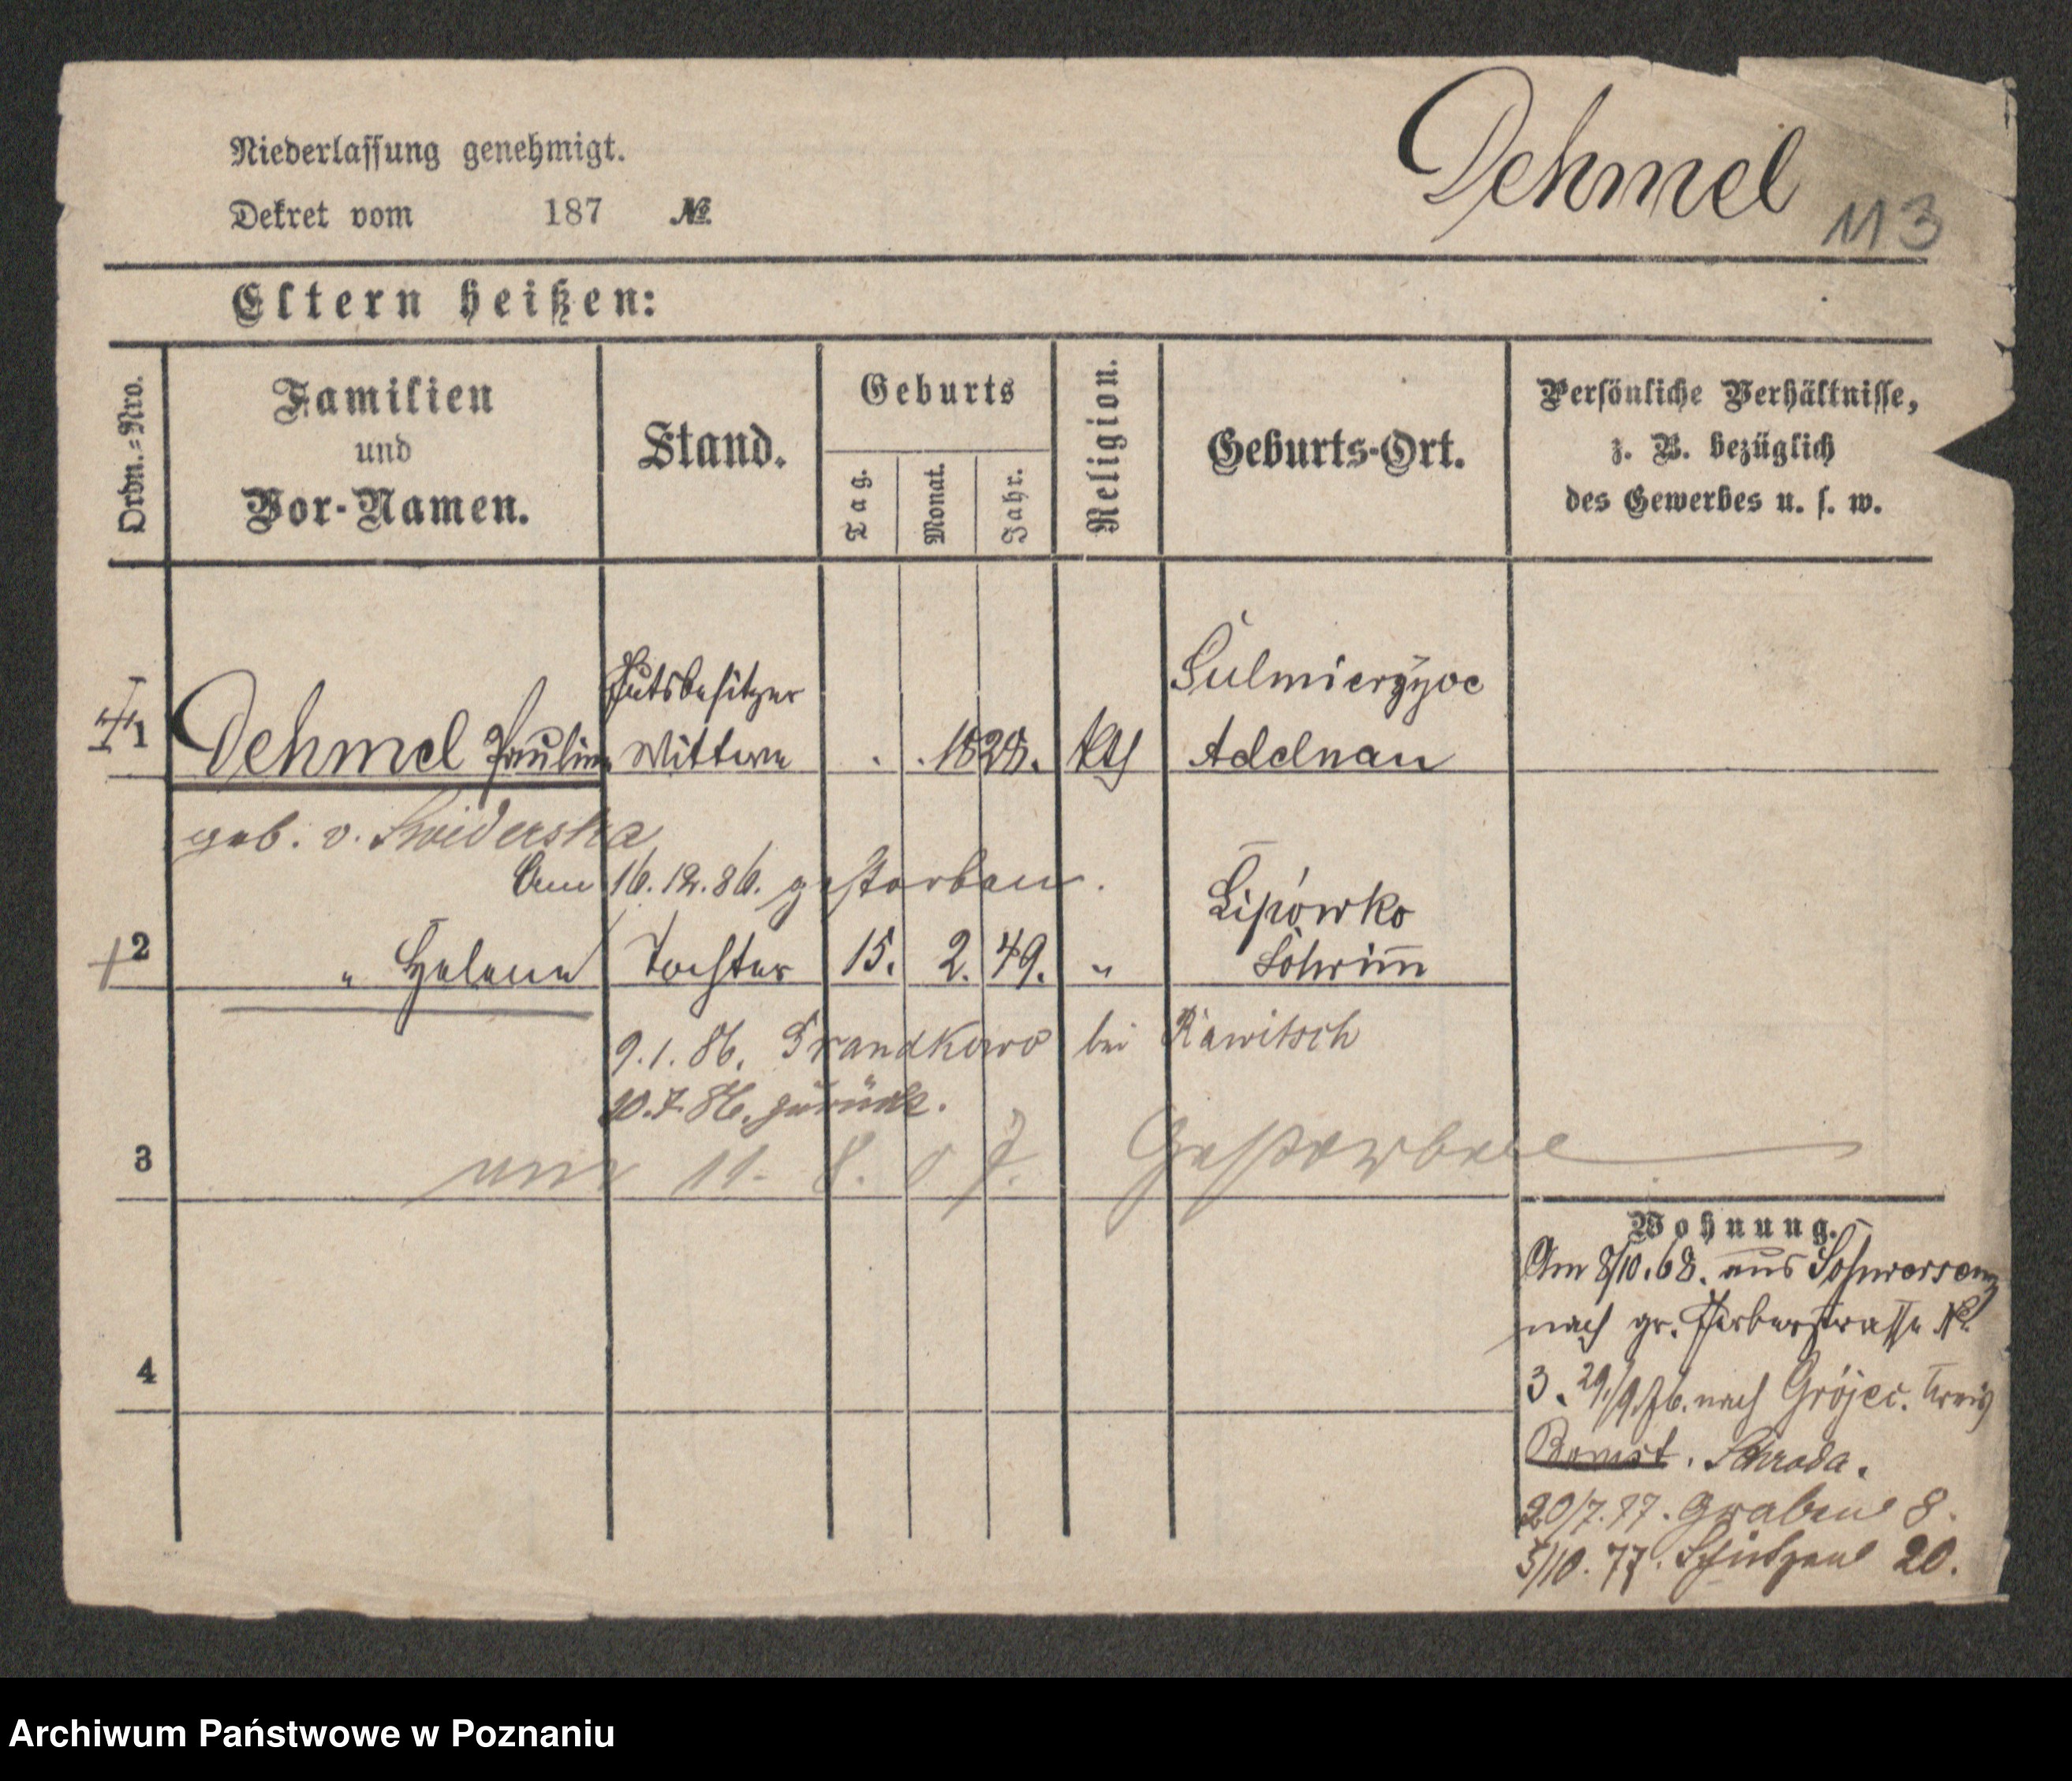 Niederlassung genehmigt.
Dekret vom 187 №
Dehmel
113
Eltern heißen:
Ordn.-Nro.
Familien
und
Vor-Namen.
Stand.
Geburts
Tag.
Monat.
Jahr.
Religion.
Geburts-Ort.
Persönliche Verhältnisse,
z. B. bezüglich
des Gewerbes u. s. w.
Gutsbesitzer
Sulmierzyce
1 Dehmel Pauline Wittwe . . 1828. kth Adelnau
geb. v. Swiderska
Am 16.12.86. gestorben.
Lipówko
2 " Helene Tochter 15. 2. 49. " Schrimm
9.1.86. bei Rawitsch
10.7.86. zurück.
3 am 11. 8. 07. Gestorben
Wohnung.
Am 8/10.68. aus Schwersenz
nach gr. Gerberstrasse №
3. 29/9.76. nach Grójec. Kreis
Bomst. Schroda.
20/7.77. Graben 8.
5/10.77. Schützen 20.
4
Archiwum Państwowe w Poznaniu